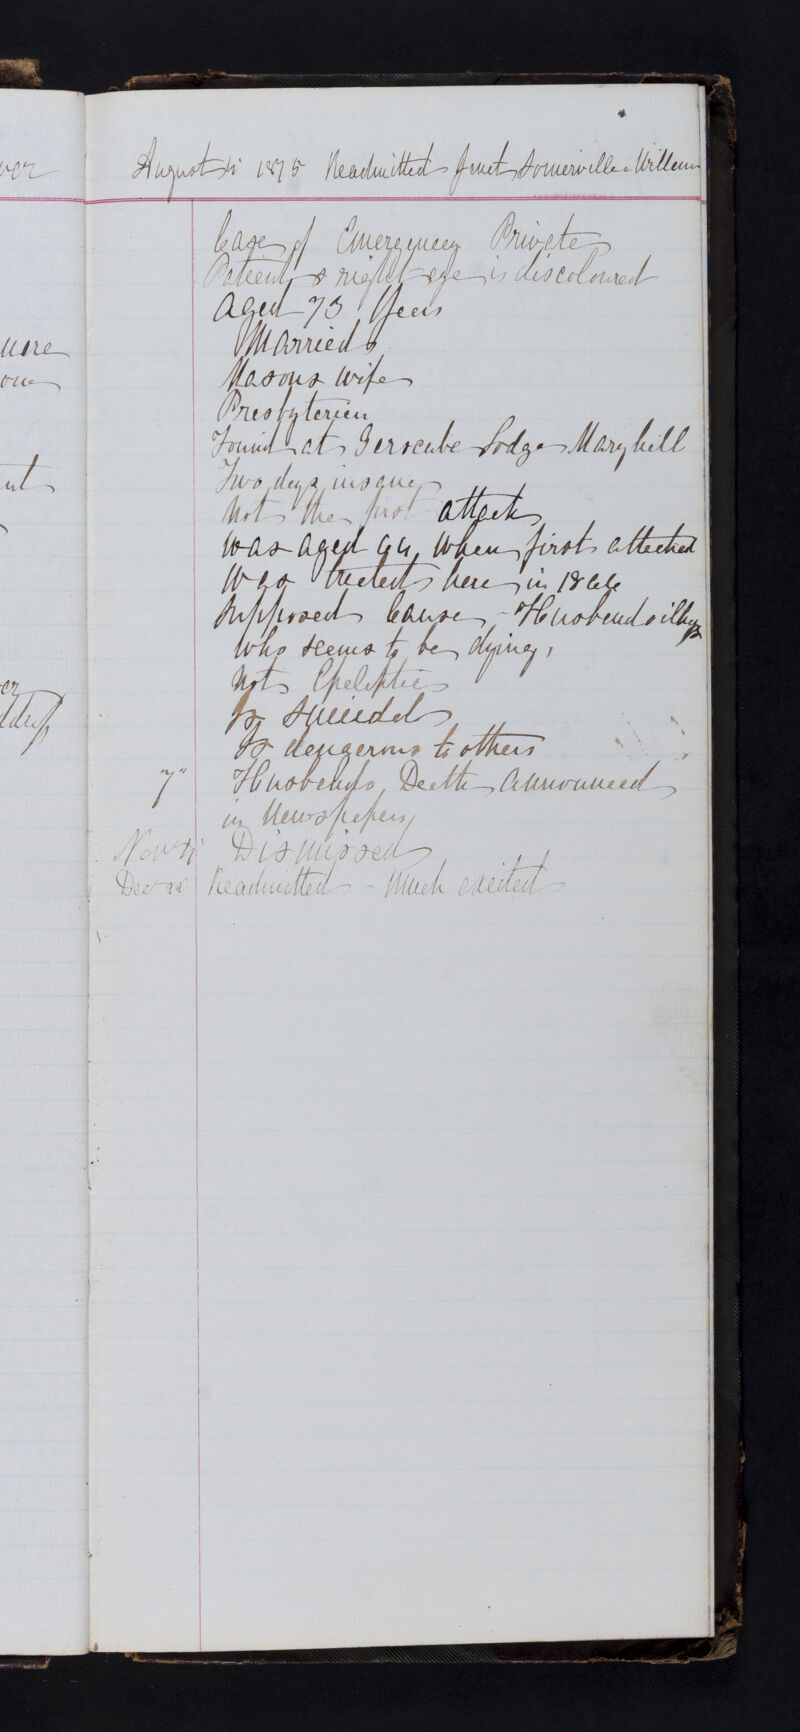 August 4 1875 Readmitted Janet Somerville or Millar
Case of Emergency Private
Patients right eye is discoloured
aged 73 Years
Married
Masons wife
Presbyterian
Found at Garscube Lodge Maryhill
Two days insane
Not the first attack
was aged 64 when first attacked
Was treated here in 1866
Supposed Cause - Husbands illness
who seems to be dying,
Not Epileptic
Is Suicidal
Is dangerous to others
7" Husbands Death announced
in Newspapers
Nov Dismissed
Dec Readmitted - Much excited